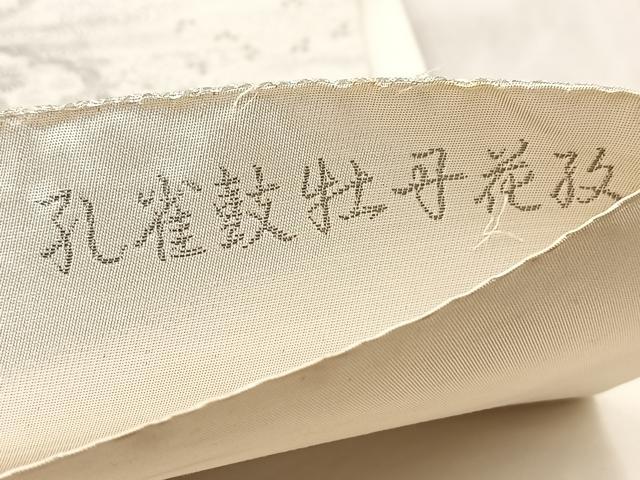 孔雀鼓牡丹花